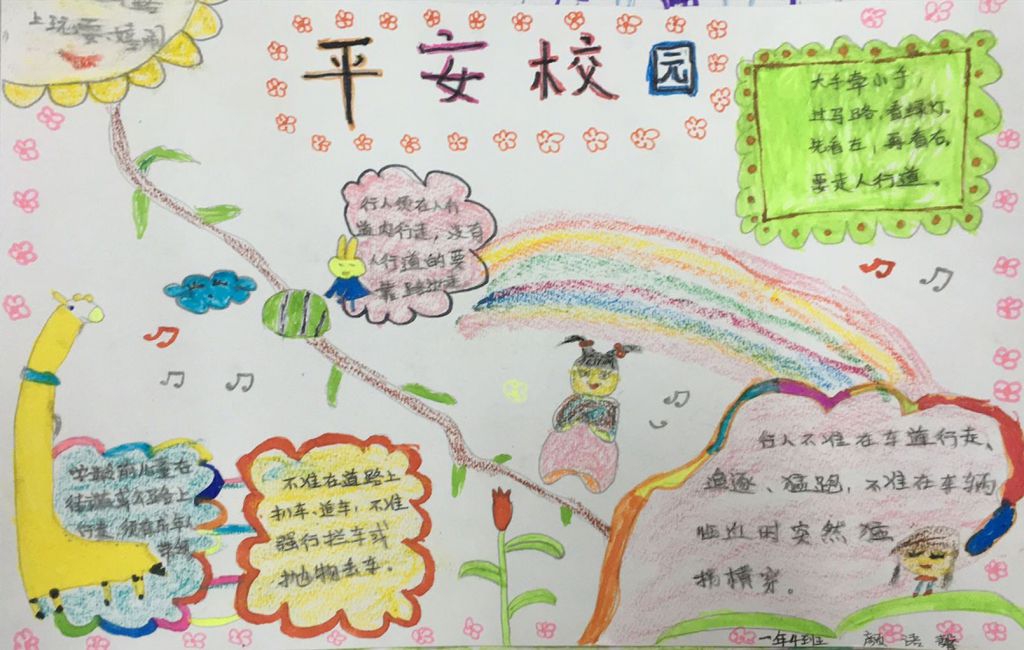 上玩耍、嬉闹
平安校园
大手牵小手,
过马路,看绿灯,
先看左,再看右,
要走人行道。
行人须在人行
道内行走,没有
人行道的要
靠路边走
学龄前儿童在
街道或公路上
行走,须有成年人
带领
不准在道路上
扒车、追车,不准
强行拦车或
抛物击车。
行人不准在车道行走、
追逐、猛跑,不准在车辆
临近时突然猛
拐横穿。
一年4班 颜语馨